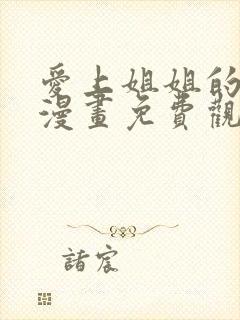 愛上姐姐的
漫畫免費觀
諸宸